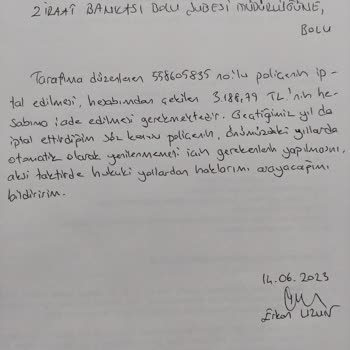 ZİRAAT BANKASI BOLU ŞUBESİ MÜDÜRLÜĞÜNE,
BOLU
Tarafıma düzenlenen 558605835 no'lu policenin ip-
tal edilmesi, hesabımdan çekilen 3.188,79 TL.'nin he-
sabıma iade edilmesi gerekmektedir. Geçtiğimiz yıl da
iptal ettirdiğim söz konusu policenin, önümüzdeki yıllarda
otomatik olarak yenilenmemesi için gerekenlerin yapılmasını,
aksi taktirde hukuki yollardan haklarımı arayacağımı
bildiririm.
14.06.2023
Erkan UZUN